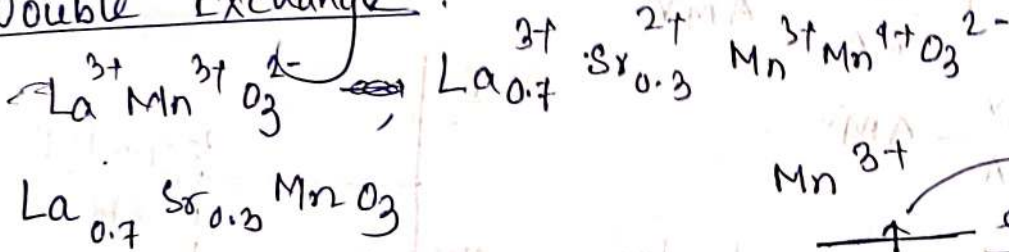 Double Exchange
La³⁺ Mn³⁺ O₃²⁻ , La₀.₇³⁺ Sr₀.₃²⁺ Mn³⁺ Mn⁴⁺ O₃²⁻
La₀.₇ Sr₀.₃ Mn O₃
Mn³⁺